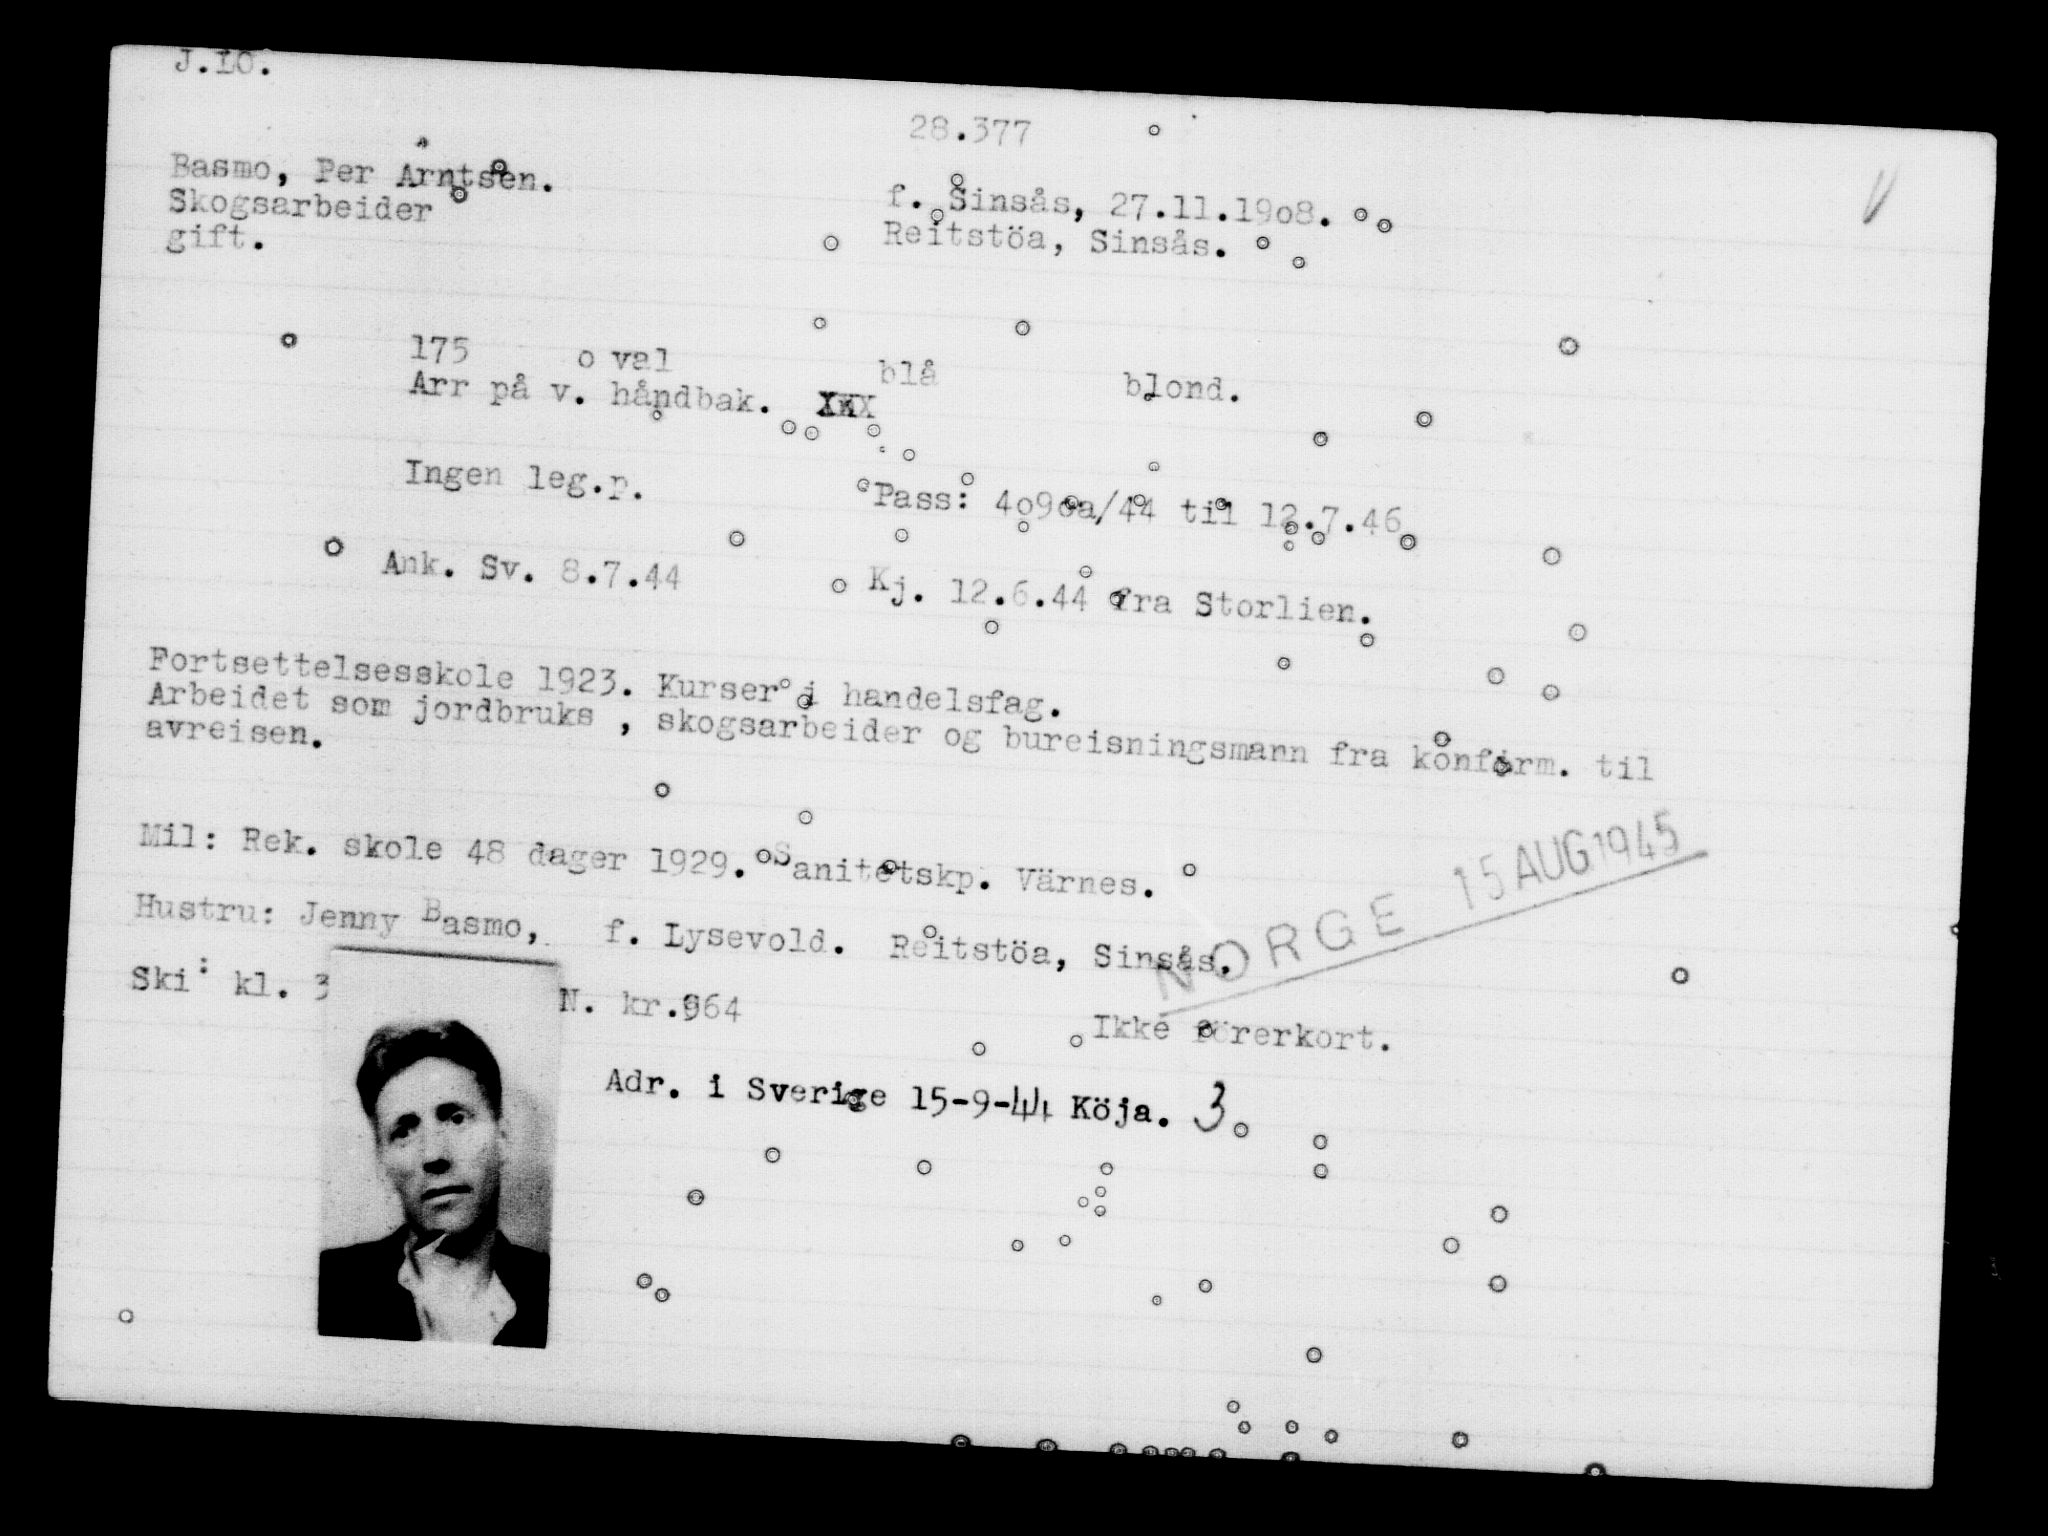 J.LO.
28.377
Basmo, Per Arntsen.
f. Sinsås, 27.11.19o8.
Skogsarbeider
Reitstöa, Sinsås.
gift.
175 o val blå blond.
Arr på v. håndbak. XXX
Ingen leg.p. Pass: 4o9oa/44 til 12.7.46
Ank. Sv. 8.7.44 Kj. 12.6.44 fra Storlien.
Fortsettelsesskole 1923. Kurser i handelsfag.
Arbeidet som jordbruks , skogsarbeider og bureisningsmann fra konfirm. til
avreisen.
Mil: Rek. skole 48 dager 1929. Sanitetskp. Värnes.
NORGE 15 AUG 1945
Hustru: Jenny Basmo, f. Lysevold. Reitstöa, Sinsås.
Ski: kl. 3 N. kr. 964 Ikke förerkort.
Adr. i Sverige 15-9-44 Köja. 3